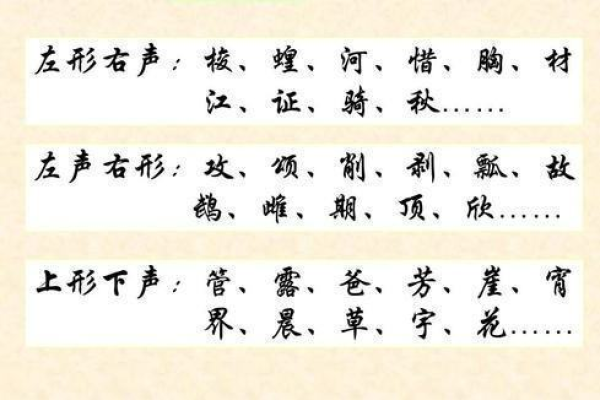 左形右声：棱、蝗、河、惜、胸、材
江、证、骑、秋……
左声右形：攻、颂、削、剥、瓢、故
鹉、雌、期、顶、欣……
上形下声：管、露、爸、芳、崖、宵
界、晨、草、宇、花……